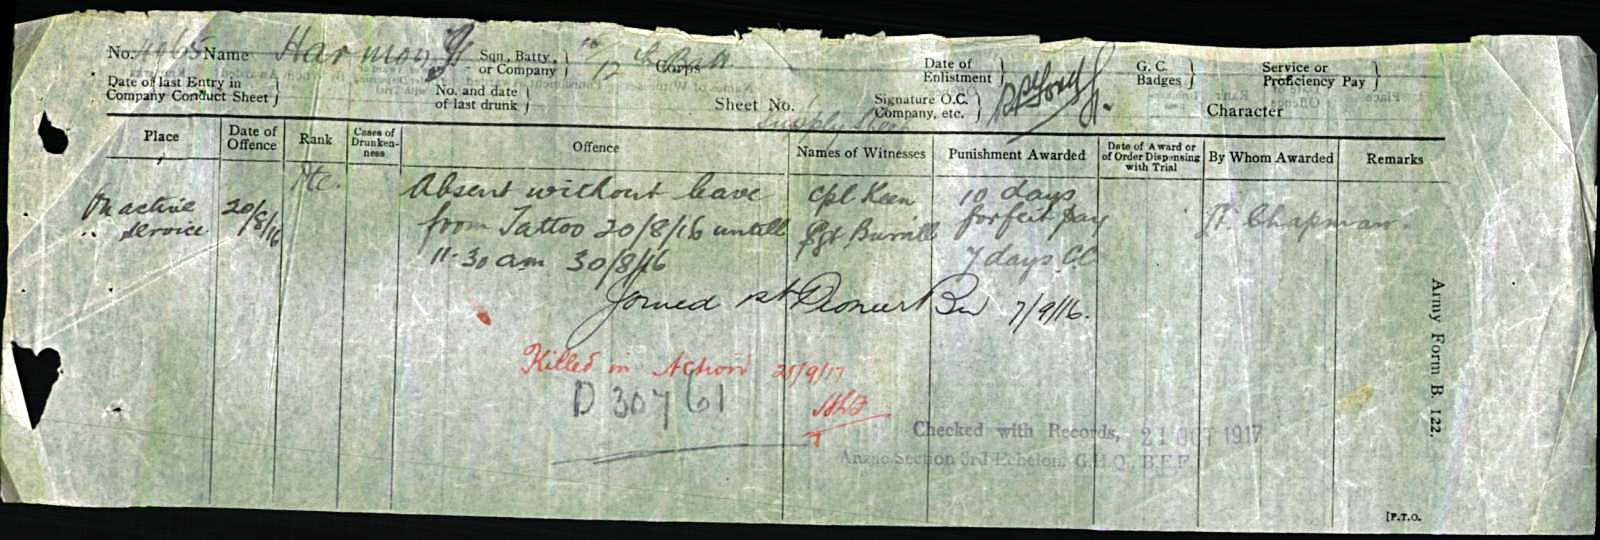 No. 4065 Name Harmon, Sqn., Batty., or Company 16/12 Corps Date of Enlistment G. C. Badges Service or Proficiency Pay
Date of last Entry in Company Conduct Sheet No. and date of last drunk Sheet No. Signature O.C. Company, etc. Character
Place Date of Offence Rank Cases of Drunkenness Offence Names of Witnesses Punishment Awarded Date of Award or of Order Dispensing with Trial By Whom Awarded Remarks
On active service 20/8/16 Pte. Absent without leave Cpl Keen 10 days
from Tattoo 20/8/16 untill Sgt Burrill forfeit pay Chapman.
11.30 am 30/8/16 7 days CC
Joined 1st Pioneer Bn 7/9/16.
Killed in Action 21/9/17
D 30761
Checked with Records, 21 OCT 1917
Anzac Section 3rd Echelon G.H.Q., B.E.F.
Army Form B. 122.
[P.T.O.